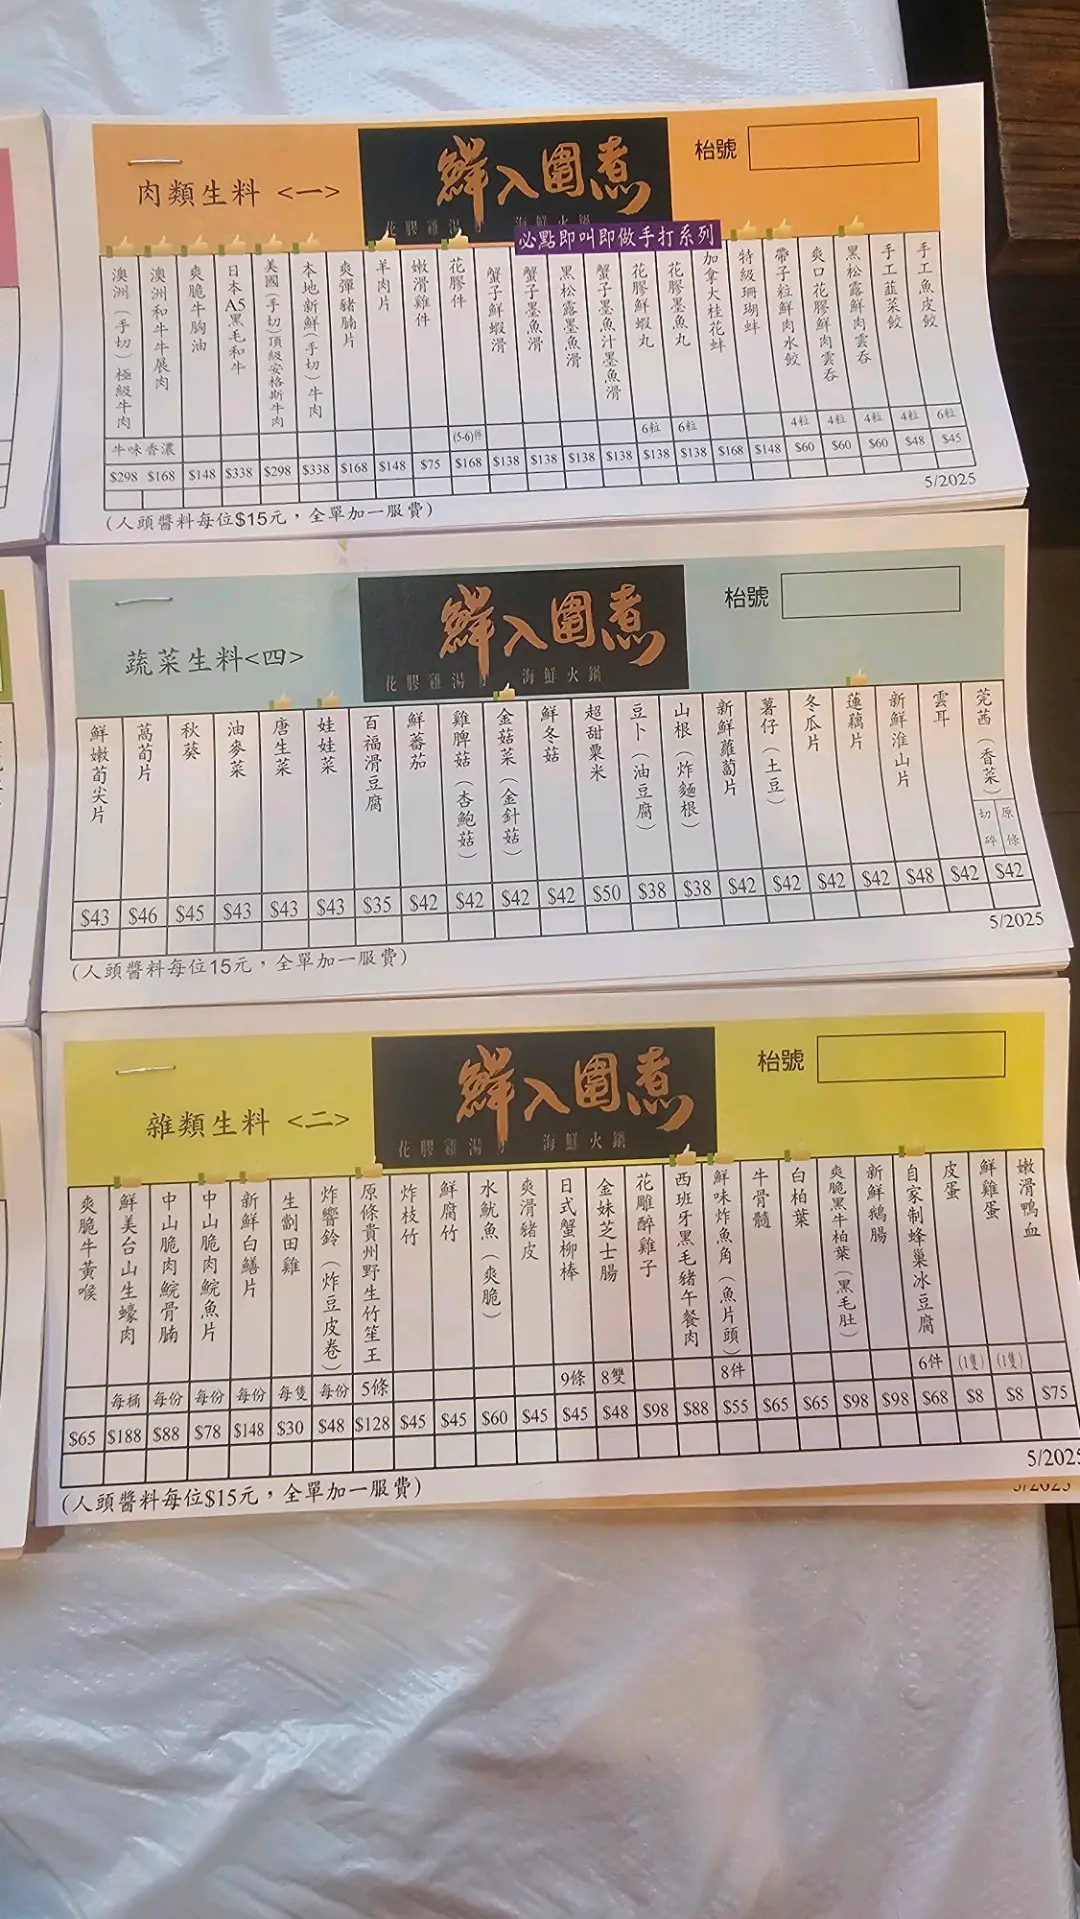 肉類生料 <一>
鮮入圍煮
花膠雞湯
海鮮火鍋
枱號
必點即叫即做手打系列
澳洲(手切)極級牛肉
澳洲和牛牛展肉
爽脆牛胸油
日本A5黑毛和牛
美國(手切)頂級安格斯牛肉
本地新鮮(手切)牛肉
爽彈豬腩片
羊肉片
嫩滑雞件
花膠件
蟹子鮮蝦滑
蟹子墨魚滑
黑松露墨魚滑
蟹子墨魚汁墨魚滑
花膠鮮蝦丸
花膠墨魚丸
加拿大桂花蚌
特級珊瑚蚌
帶子粒鮮肉水餃
爽口花膠鮮肉雲吞
黑松露鮮肉雲吞
手工韮菜餃
手工魚皮餃
牛味香濃 (5-6)件 6粒 6粒 4粒 4粒 4粒 4粒 6粒
$298 $168 $148 $338 $298 $338 $168 $148 $75 $168 $138 $138 $138 $138 $138 $138 $168 $148 $60 $60 $60 $48 $45
5/2025
(人頭醬料每位$15元，全單加一服費)
蔬菜生料<四>
鮮入圍煮
花膠雞湯
海鮮火鍋
枱號
鮮嫩荀尖片
萵荀片
秋葵
油麥菜
唐生菜
娃娃菜
百福滑豆腐
鮮蕃茄
雞脾菇(杏鮑菇)
金菇菜(金針菇)
鮮冬菇
超甜粟米
豆卜(油豆腐)
山根(炸麵根)
新鮮蘿蔔片
薯仔(土豆)
冬瓜片
蓮藕片
新鮮淮山片
雲耳
莞茜(香菜)
切碎
原條
$43 $46 $45 $43 $43 $43 $35 $42 $42 $42 $42 $50 $38 $38 $42 $42 $42 $42 $48 $42 $42
5/2025
(人頭醬料每位15元，全單加一服費)
雜類生料 <二>
鮮入圍煮
花膠雞湯
海鮮火鍋
枱號
爽脆牛黃喉
鮮美台山生蠔肉
中山脆肉鯇骨腩
中山脆肉鯇魚片
新鮮白鱔片
生劏田雞
炸響鈴(炸豆皮卷)
原條貴州野生竹笙王
炸枝竹
鮮腐竹
水魷魚(爽脆)
爽滑豬皮
日式蟹柳棒
金妹芝士腸
花雕醉雞子
西班牙黑毛豬午餐肉
鮮味炸魚角(魚片頭)
牛骨髓
白柏葉
爽脆黑牛柏葉(黑毛肚)
新鮮鵝腸
自家制蜂巢冰豆腐
皮蛋
鮮雞蛋
嫩滑鴨血
每桶 每份 每份 每份 每隻 每份 5條 9條 8雙 8件 6件 (1隻) (1隻)
$65 $188 $88 $78 $148 $30 $48 $128 $45 $45 $60 $45 $45 $48 $98 $88 $55 $65 $65 $98 $98 $68 $8 $8 $75
5/2025
(人頭醬料每位$15元，全單加一服費)
5/2025